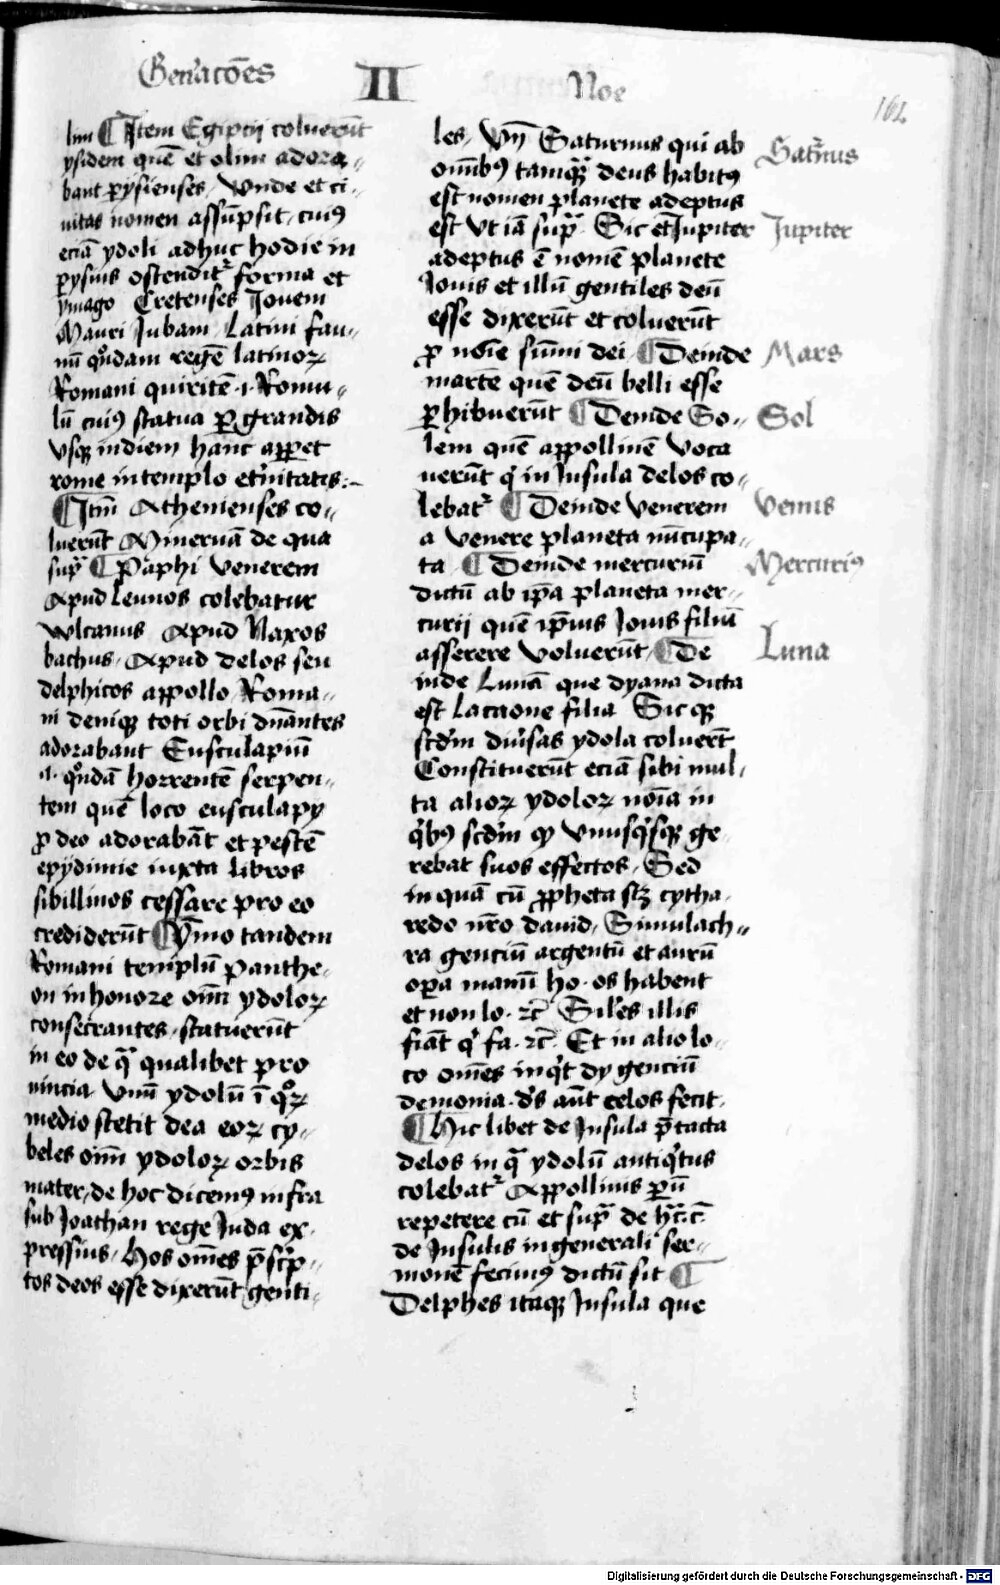 Gen̄acōes II Noe
162
lim ¶ Item Egipcij coluerūt
ysidem quē et olim adora⸗
bant pysienses, Vnde et ci⸗
uitas nomen assūpsit, cuiꝰ
eciā ydoli adhuc hodie in
pysius ostendit᷑ forma et
ymago Cretenses Jouem
Mauri Jubam Latini fau⸗
nū qͦndam regē latinoꝝ
Romani quiritē .i. Romu⸗
lū cuiꝰ statua ꝑgrandis
vsqꝫ in diem hanc apꝑet
rome in templo et̓nitatis:⸗
¶ Itm̄ Athenienses co⸗
luerūt Mineruā de qua
supᷓ ¶ Paphi Venerem
Apud Lennos colebatur
wlcanus Apud Naxos
bachus, Apud delos seu
delphicos appollo Roma⸗
ni deniqꝫ toti orbi dn̄antes
adorabant Eusculapiū
.i. qͦndā horrentē serpen⸗
tem quē loco eusculapy
ꝓ deo adorabāt et pestē
epydimie iuxta libros
sibillinos cessare pro eo
crediderūt ¶ Ymo tandem
Romani templū Panthe⸗
on in honore om̄i ydoloꝝ
consecrantes, statuerūt
in eo de qᷓ qualibet pro
uincia vnū ydolū ī qͦꝝ
medio stetit dea eoꝝ cy⸗
beles om̄i ydoloꝝ orbis
mater, de hoc dicemꝰ infra
sub Joathan rege Juda ex⸗
pressius, Hos om̄es p̄scp̄⸗
tos deos esse dixerūt genti⸗
les, Vn̄ Saturnus qui ab
om̄ibꝰ tamqᷓ deus habitꝰ
est nomen planete adeptus
est vt iā supᷓ Sic et Jupiter
adeptus ē nomē planete
Jouis et illū gentiles deū
esse dixerūt et coluerūt
ꝓ noīe sūmi dei ¶ Deinde
martē quē deū belli esse
ꝑhibuerūt ¶ Deinde So⸗
lem quē appollinē voca
uerūt qͥ in Jnsula delos co⸗
lebat᷑ ¶ Deinde venerem
a venere planeta nūcupa⸗
ta ¶ Deinde mercuriū
dictū ab ip̄a planeta mer⸗
curij quē ip̄ius Jouis filiū
asserere voluerūt, ¶ De
inde Lunā que dyana dicta
est Latone filia Sicqꝫ
scd̄m diu̓sas ydola coluerūt
Constituerūt eciā sibi mul⸗
ta alioꝝ ydoloꝝ noīa in
qͥbꝰ scd̄m qꝫ vnusqͥsqꝫ ge⸗
rebat suos effectos, Sed
inquā cū ꝓpheta scꝫ cytha⸗
redo nr̄o dauid, Simulach⸗
ra genciū argentū et aurū
oꝑa manuū ho. os habent
et non lo. ⁊c̄ Sil̓es illis
fiāt qͥ fa. ⁊c̄. Et in alio lo⸗
co om̄es inqͥt dy genciū
demonia. dn̄s aūt celos fecit.
¶ Hic libet de Jnsula p̄tacta
delos in qᷓ ydolū antiqͥtus
colebat᷑ Appollinis ꝑū
repetere cū et supᷓ de hͨ ⁊c̄
de Jnsulis in generali ser⸗
monē fecimꝰ dictū sit ¶
Delphes itaqꝫ Jnsula que
Sat̓nus
Jupiter
Mars
Sol
Venus
Mercuriꝰ
Luna
Digitalisierung gefördert durch die Deutsche Forschungsgemeinschaft - DFG